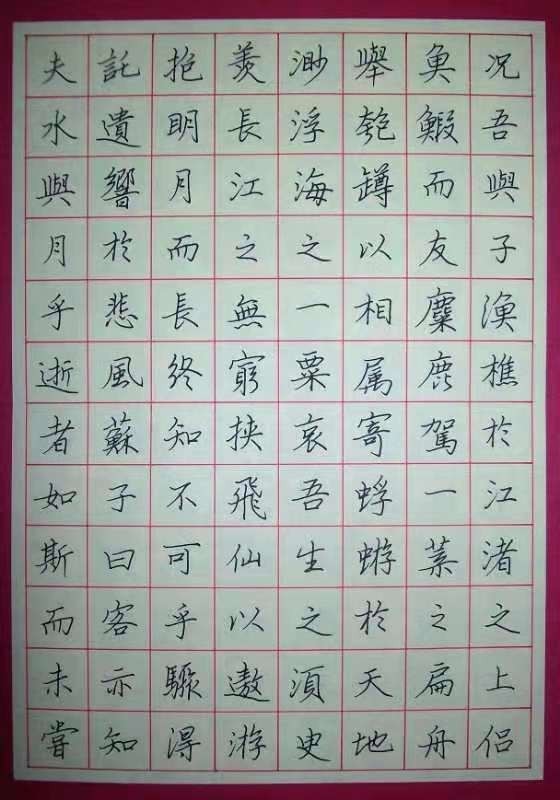 况吾與子漁樵於江渚之上侣
魚鰕而友麋鹿駕一葉之扁舟
舉匏罇以相属寄蜉蝣於天地
渺浮海之一粟哀吾生之須臾
羨長江之無窮挾飛仙以遨游
抱明月而長終知不可乎驟得
託遺響於悲風蘇子曰客亦知
夫水與月乎逝者如斯而未嘗